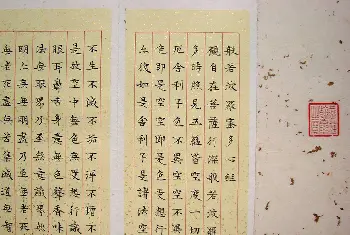 般若波羅蜜多心経
觀自在菩薩行深般若波羅
多時照見五蘊皆空度一切
厄舍利子色不異空空不異
色即是空空即是色受想行
亦復如是舍利子是諸法空
不生不滅不垢不淨不增不
是故空中無色無受想行識
眼耳鼻舌身意無色聲香味
法無眼界乃至無意識界無
明亦無無明盡乃至無老死
無老死盡無苦集滅道無智